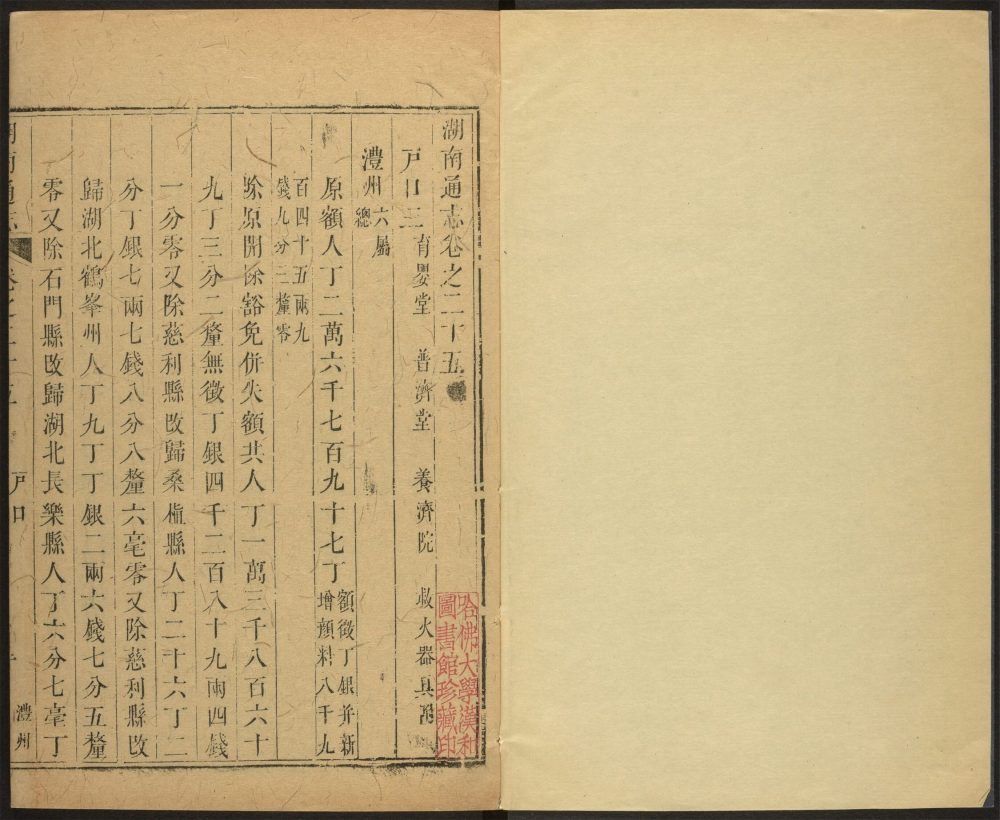 湖南通志卷之二十五
戶口三 育嬰堂 普濟堂 養濟院 救火器具附
澧州 六屬總
原額人丁二萬六千七百九十七丁 額徵丁銀并新
增顏料八千九
百四十五兩九
錢九分二釐零
除原開除豁免併失額共人丁一萬三千八百六十
九丁三分二釐無徵丁銀四千二百八十九兩四錢
一分零又除慈利縣改歸桑植縣人丁二十六丁二
分丁銀七兩七錢八分八釐六毫零又除慈利縣改
歸湖北鶴峯州人丁九丁丁銀二兩六錢七分五釐
零又除石門縣改歸湖北長樂縣人丁六分七毫丁
戶口
澧州
哈佛大學漢和
圖書館珍藏印